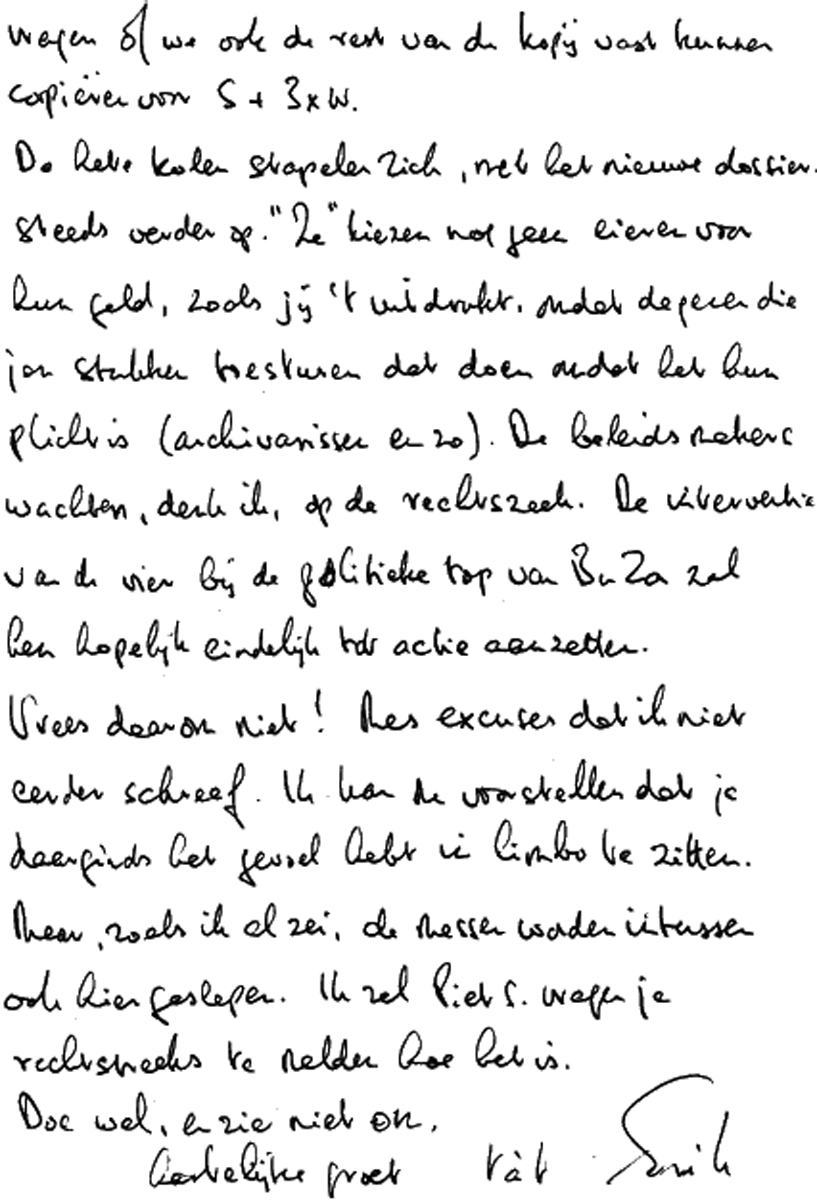 vragen of we ook de rest van de kopij vast kunnen
copiëren voor S + 3xW.
De hete kolen stapelen zich, met het nieuwe dossier.
steeds verder op. "Ze" kiezen nog geen eieren voor
hun geld, zoals jij 't uitdrukt, omdat degenen die
jou stukken toesturen dat doen omdat het hun
plicht is (archivarissen en zo). De beleidsmakers
wachten, denk ik, op de rechtszaak. De interventie
van de vier bij de politieke top van BuZa zal
hen hopelijk eindelijk tot actie aanzetten.
Vrees daarom niet! Mes excuses dat ik niet
eerder schreef. Ik kan me voorstellen dat je
daarginds het gevoel hebt in limbo te zitten.
Maar, zoals ik al zei, de messen worden intussen
ook hier geslepen. Ik zal Piet S. vragen je
rechtstreeks te melden hoe het is.
Doe wel, en zie niet om.
Hartelijke groet tàt